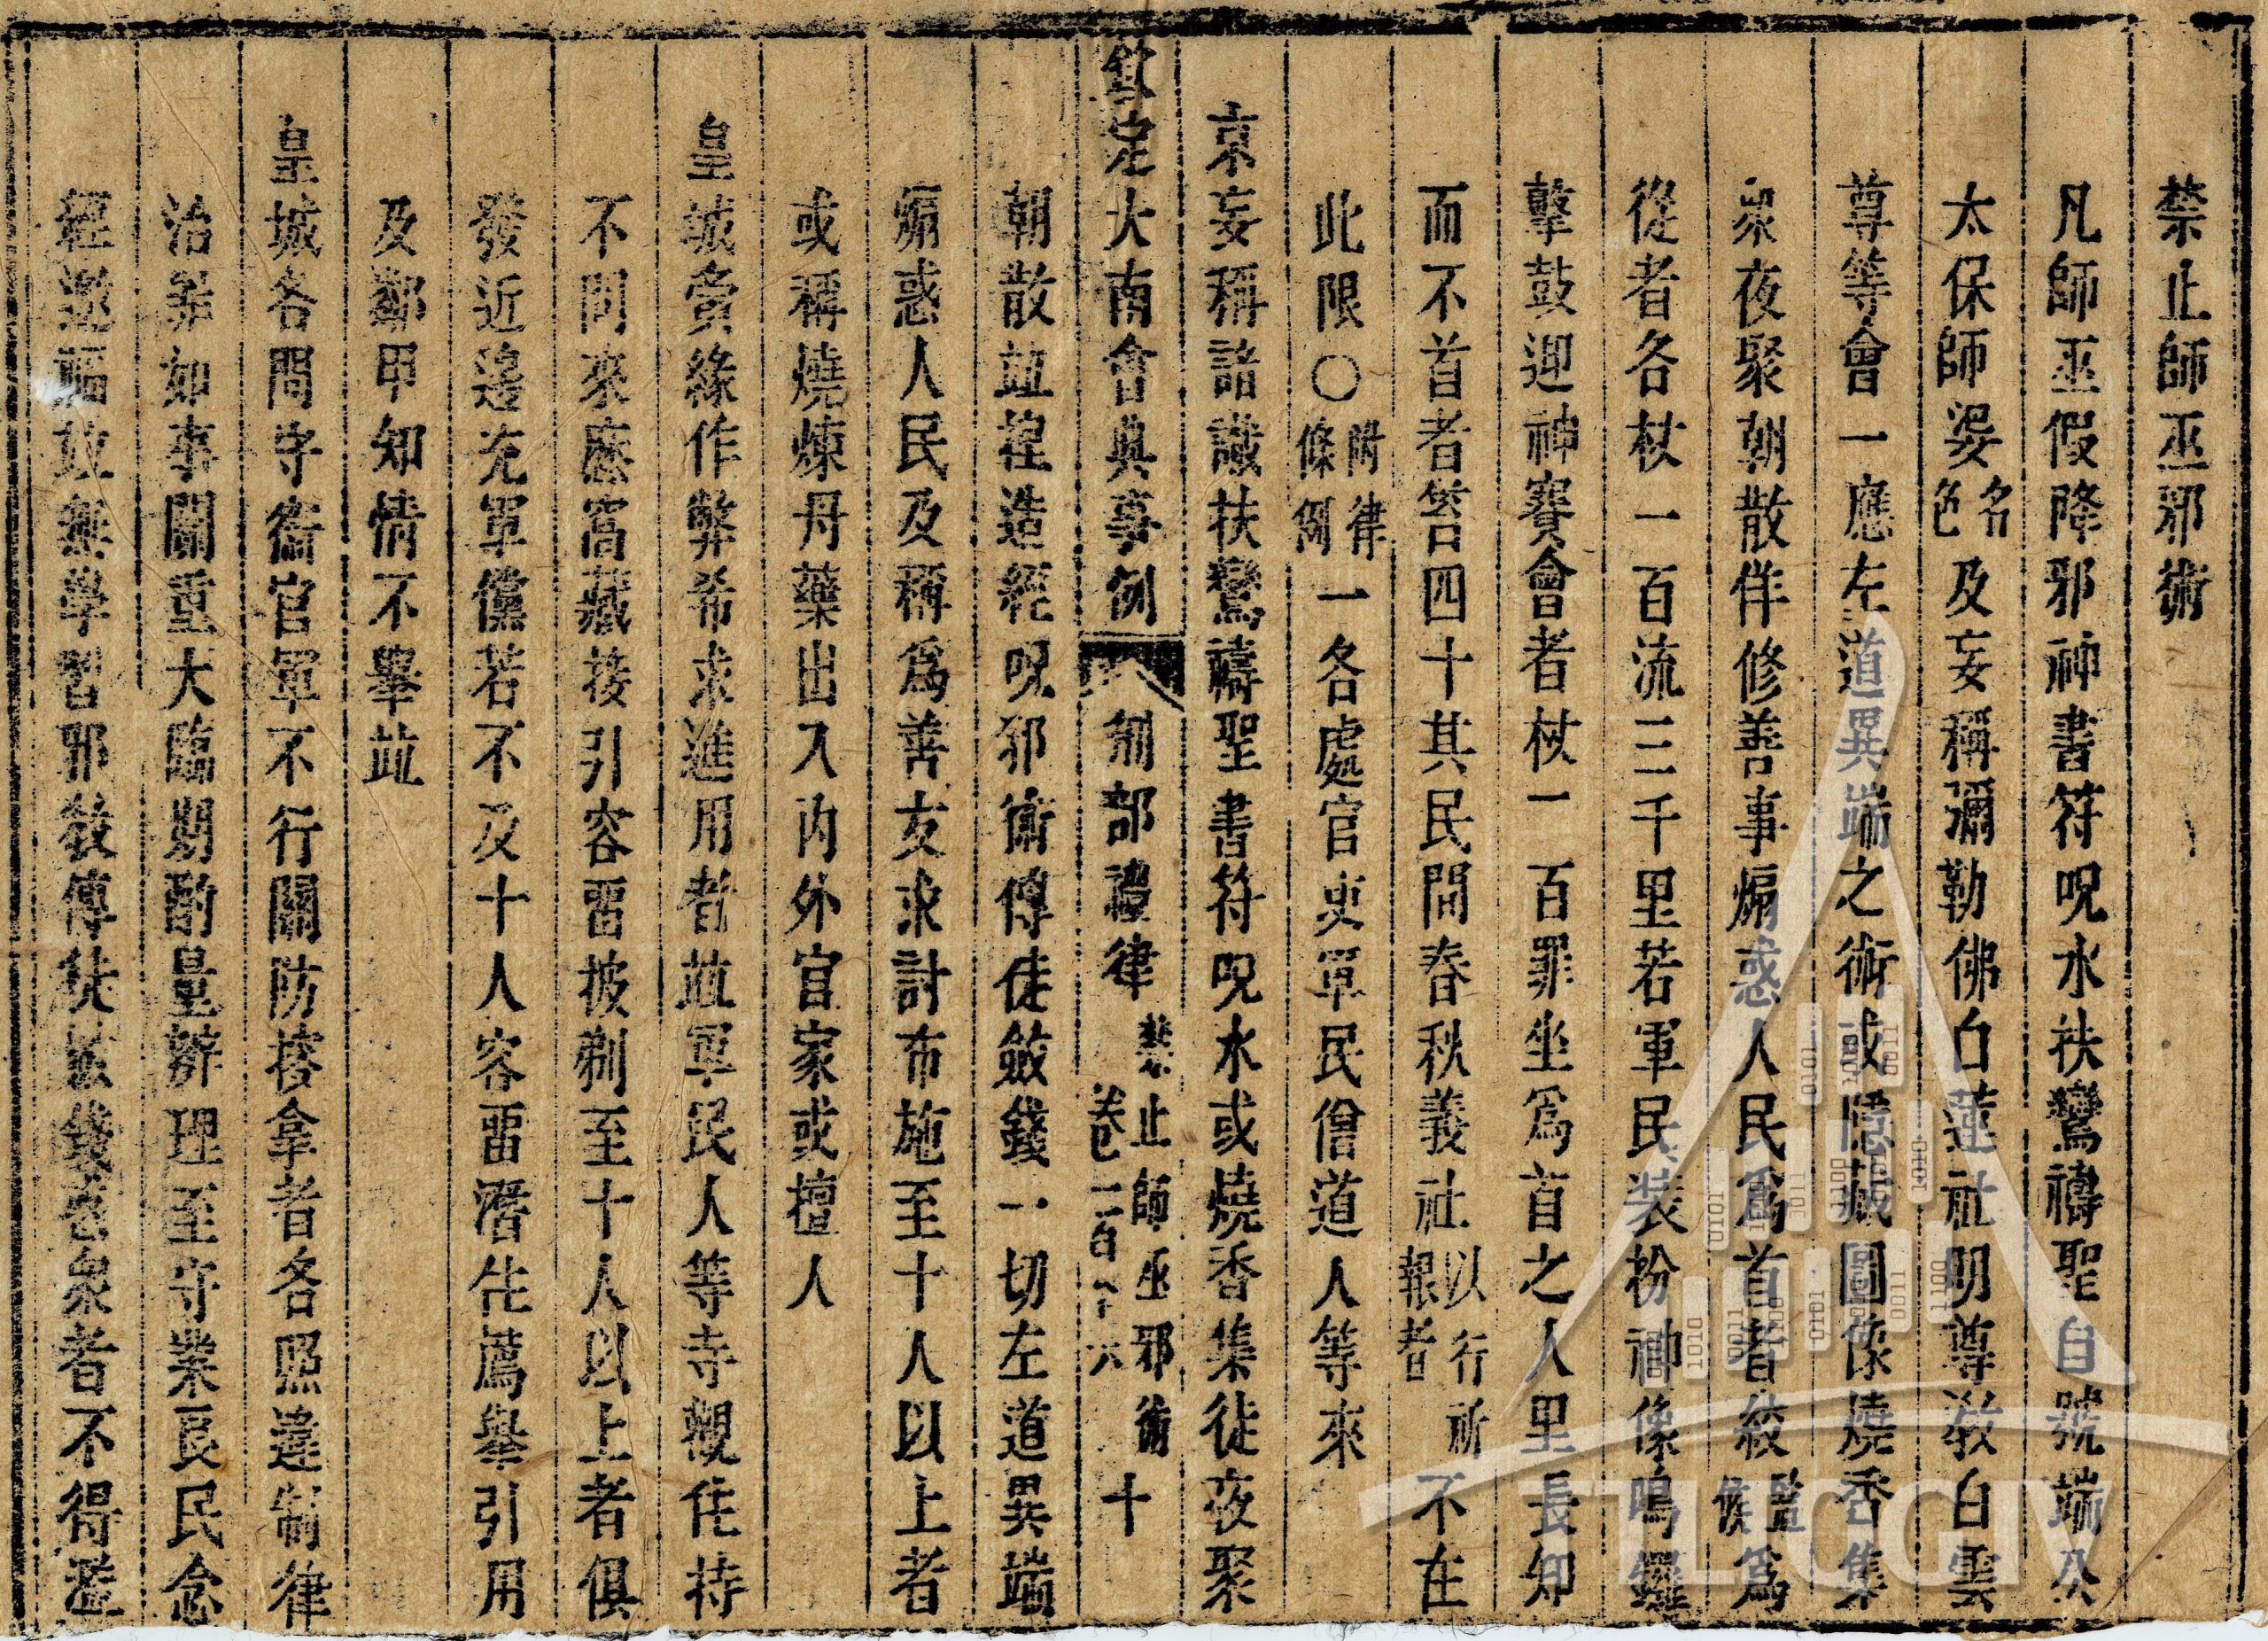 禁止師巫邪術
凡師巫假降邪神書符呪水扶鸞禱聖自號端公
太保師婆名色及妄稱彌勒佛白蓮社明尊教白雲
尊等會一應左道異端之術或隱藏圖像燒香集
眾夜聚朝散佯修善事煽惑人民爲首者絞監候爲
從者各杖一百流三千里若軍民裝扮神像鳴鑼
擊鼓迎神賽會者杖一百罪坐爲首之人里長知
而不首者笞四十其民間春秋義社以行祈報者不在
此限〇附律條例一各處官吏軍民僧道人等來
京妄稱諳識扶鸞禱聖書符呪水或燒香集徒夜聚
欽定大南會典事例 刑部禮律 禁止師巫邪術 卷一百八十六 十
朝散竝捏造經呪邪術傳徒斂錢一切左道異端
煽惑人民及稱爲善友求討布施至十人以上者
或稱燒煉丹藥出入內外官家或擅入
皇城夤緣作弊希求進用者竝軍民人等寺觀住持
不問來歷窩藏接引容畱披剃至十人以上者俱
發近邊充軍儻若不及十人容畱潛住薦舉引用
及鄰甲知情不舉竝
皇城各門守衞官軍不行關防搜拿者各照違制律
治罪如事關重大臨期酌量辦理至守業良民念
經邀福故無學習邪教傳徒斂錢惑眾者不得濫